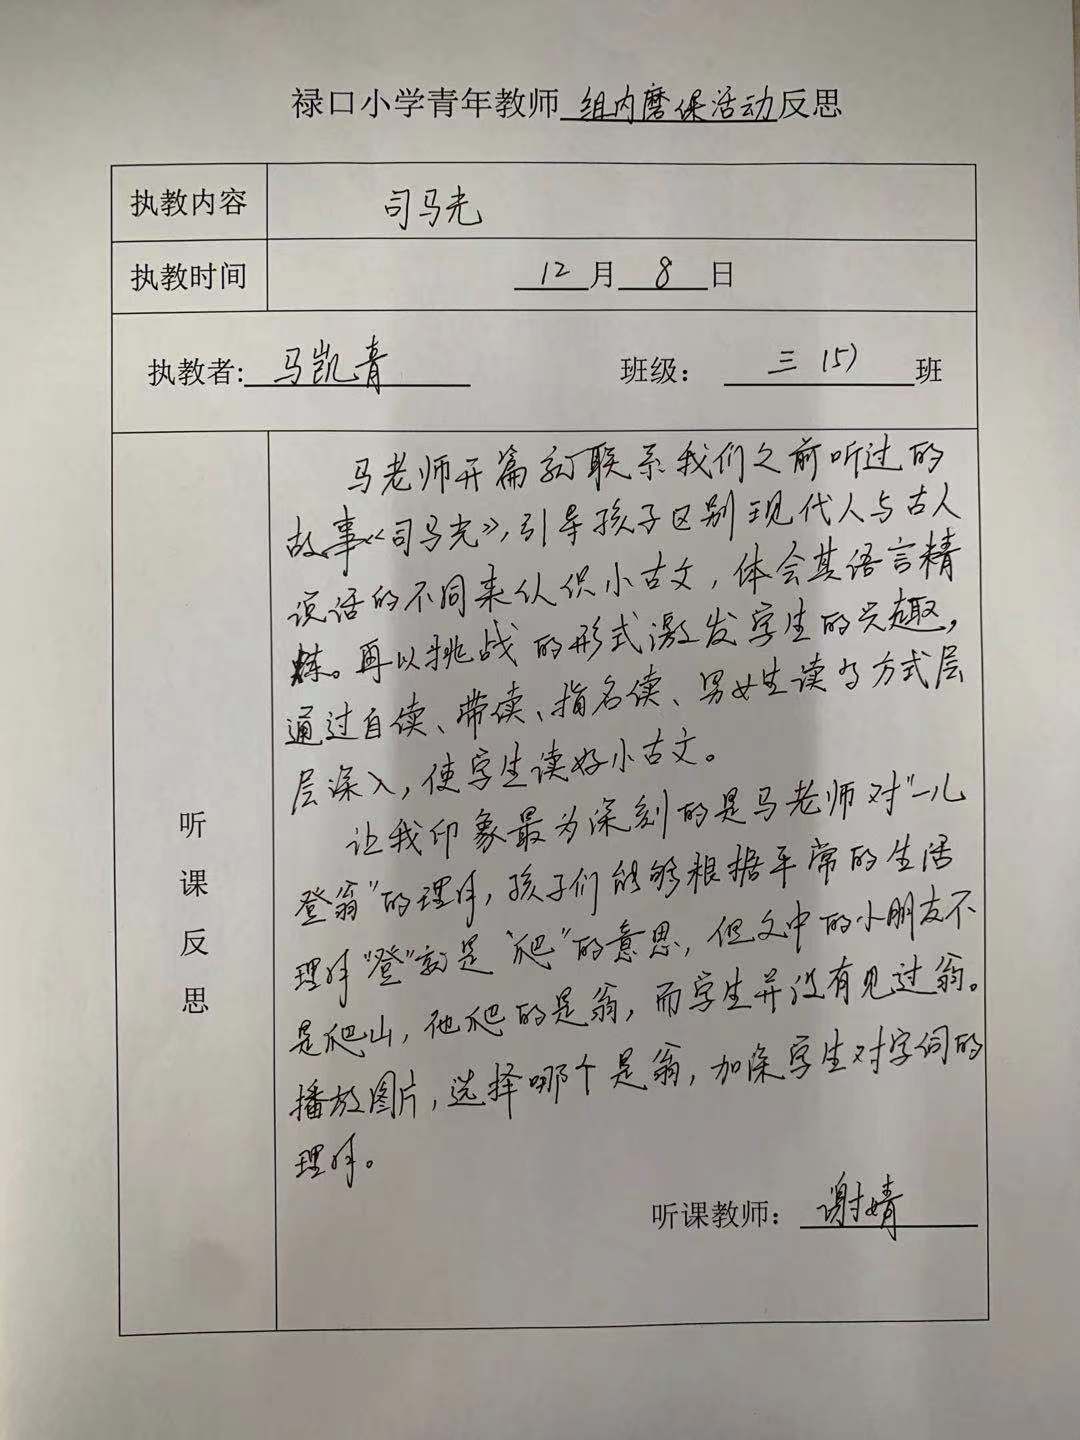 禄口小学青年教师组内磨课活动反思
执教内容 司马光
执教时间 12月8日
执教者:马凯青 班级：三（5）班
听课反思
马老师开篇就联系我们之前听过的
故事《司马光》，引导孩子区别现代人与古人
说话的不同来认识小古文，体会其语言精
炼。再以挑战的形式激发学生的兴趣，
通过自读、带读、指名读、男女生读等方式层
层深入，使学生读好小古文。
让我印象最为深刻的是马老师对“一儿
登瓮”的理解，孩子们能够根据平常的生活
理解“登”就是“爬”的意思，但文中的小朋友不
是爬山，他爬的是瓮，而学生并没有见过瓮。
播放图片，选择哪个是瓮，加深学生对字词的
理解。
听课教师：谢婧